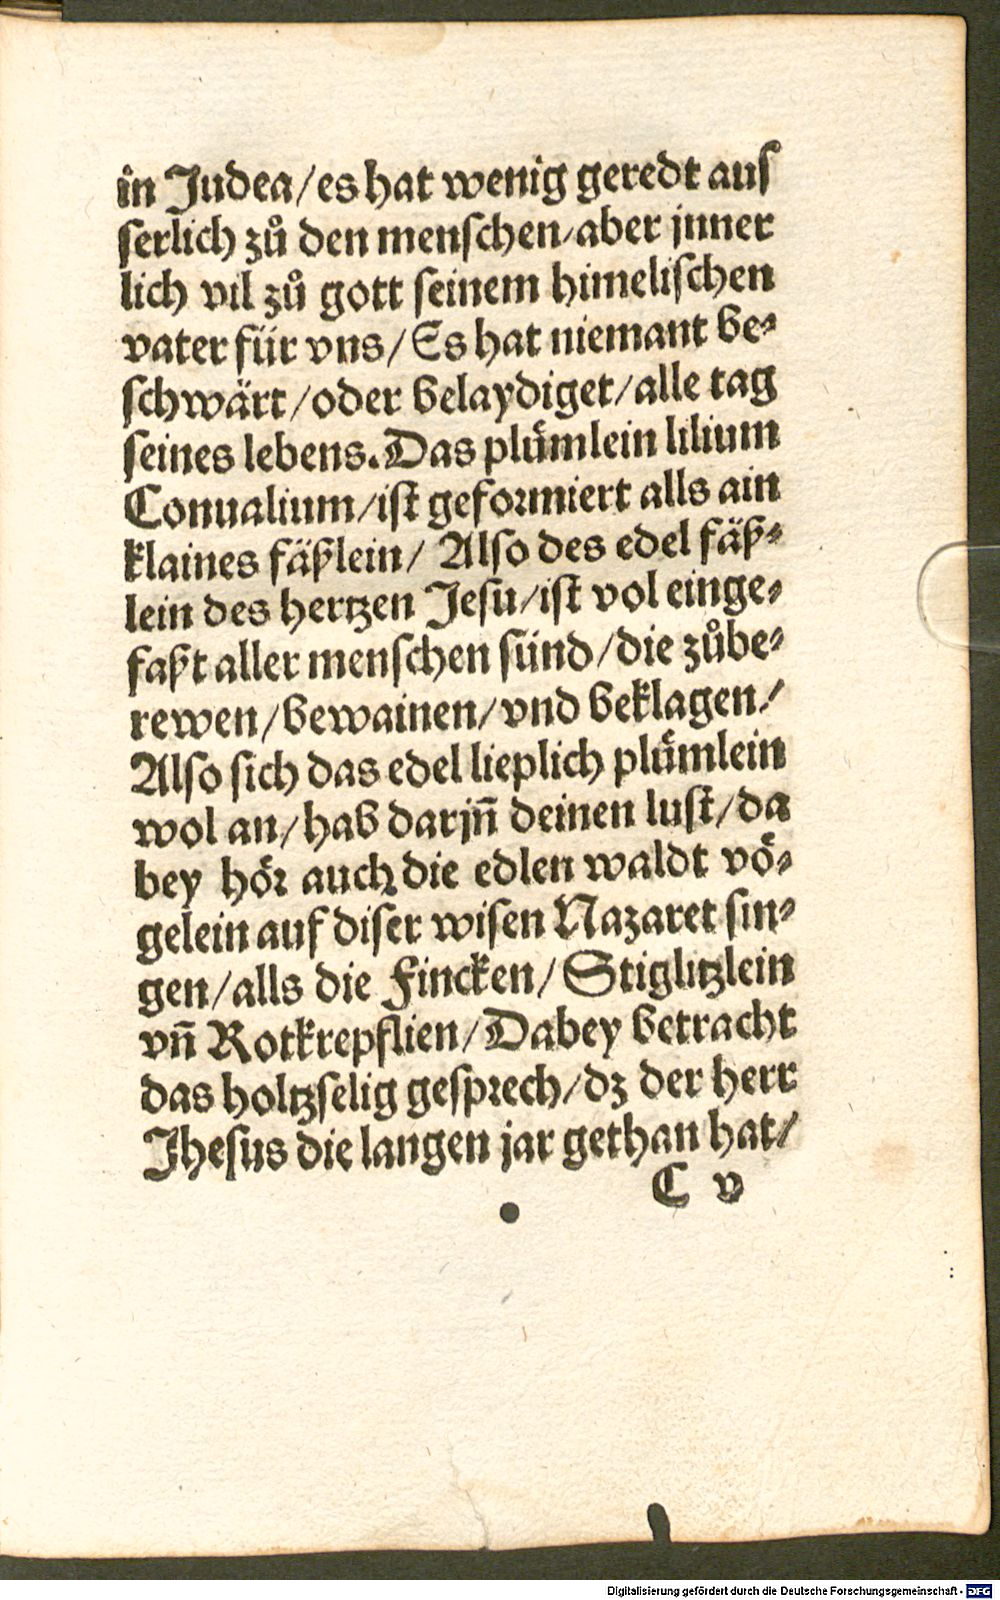 in Judea/es hat wenig geredt auſ
ſerlich zuͦ den menſchen/aber jnner
lich vil zuͦ gott ſeinem himeliſchen
vater für vns/Es hat niemant be⸗
ſchwärt/oder belaydiget/alle tag
ſeines lebens.Das pluͤmlein lilium
Conualium/iſt geformiert alls ain
klaines fäßlein/ Alſo des edel fäß⸗
lein des hertzen Jeſu/iſt vol einge⸗
faßt aller menſchen ſünd/die zuͦbe⸗
rewen/bewainen/vnd beklagen/
Alſo ſich das edel lieplich pluͤmlein
wol an/hab darjn̄ deinen luſt/da
bey hoͤr auch die edlen waldt voͤ⸗
gelein auf diſer wiſen Nazaret ſin⸗
gen/alls die Fincken/Stiglitzlein
vn̄ Rotkrepflien/Dabey betracht
das holtzſelig geſprech/dz der herr
Jheſus die langen jar gethan hat/
C v
Digitalisierung gefördert durch die Deutsche Forschungsgemeinschaft - DFG